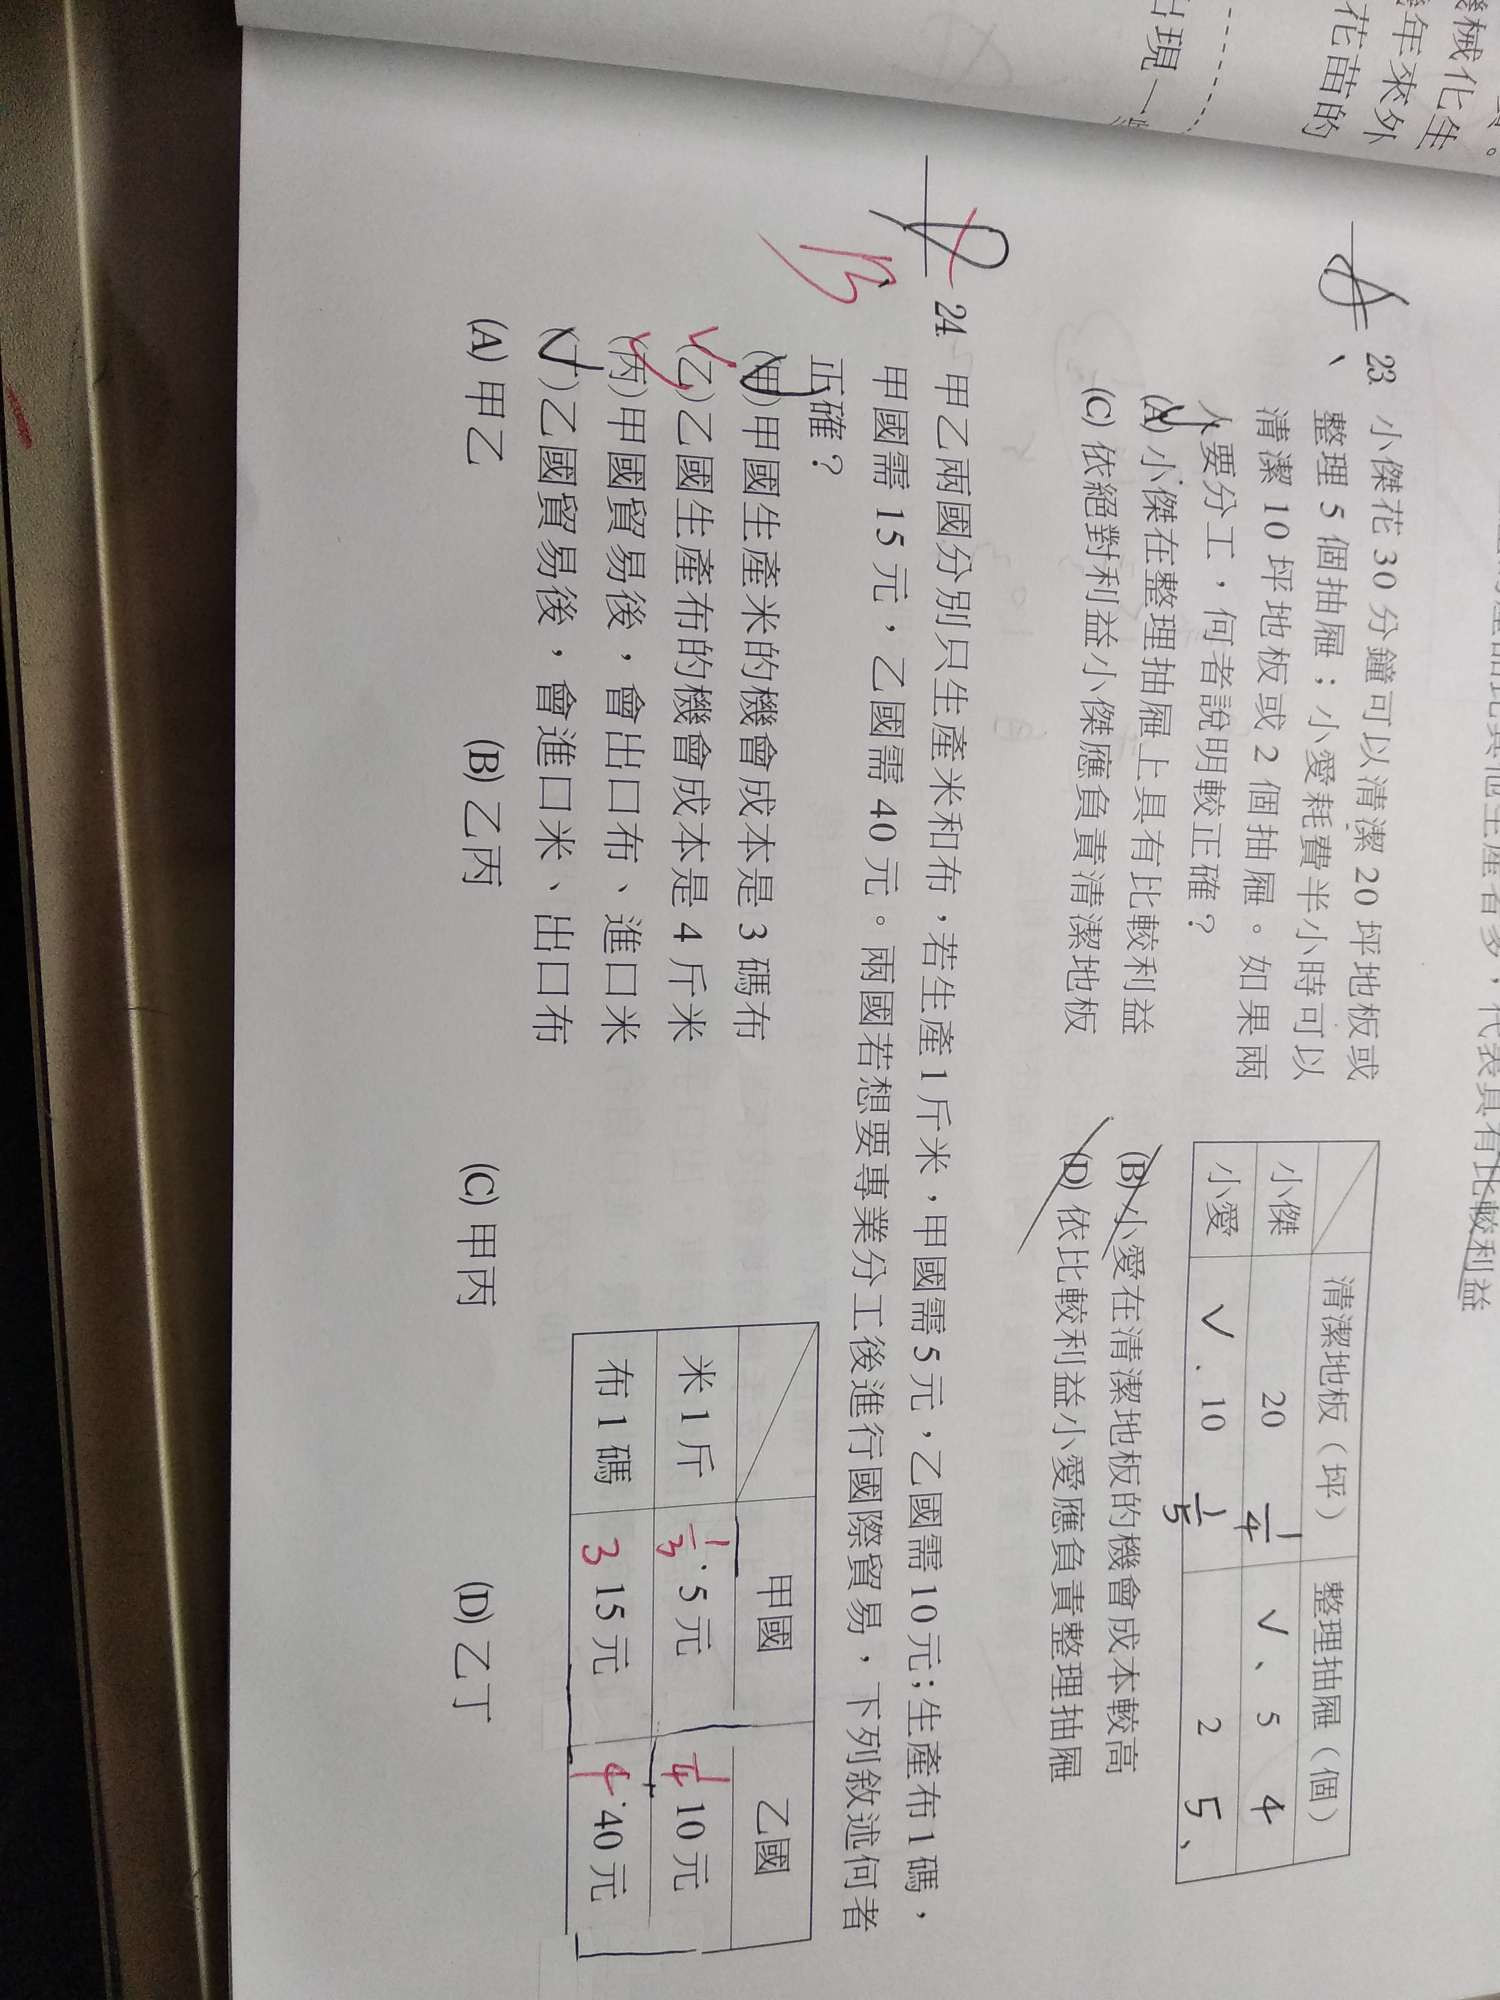 機械化生
幾年來外
花苗的
出現一
代表具有比較利益
A、
23. 小傑花 30 分鐘可以清潔 20 坪地板或
整理 5 個抽屜；小愛耗費半小時可以
清潔 10 坪地板或 2 個抽屜。如果兩
人要分工，何者說明較正確？
清潔地板（坪） 整理抽屜（個）
小傑 20 1/4 ✓、5 4
小愛 ✓.10 1/5 2 5、
(A) 小傑在整理抽屜上具有比較利益 (B) 小愛在清潔地板的機會成本較高
(C) 依絕對利益小傑應負責清潔地板 (D) 依比較利益小愛應負責整理抽屜
B
24. 甲乙兩國分別只生產米和布，若生產 1 斤米，甲國需 5 元，乙國需 10 元；生產布 1 碼，
甲國需 15 元，乙國需 40 元。兩國若想要專業分工後進行國際貿易，下列敘述何者
正確？
(甲)甲國生產米的機會成本是 3 碼布
(乙)乙國生產布的機會成本是 4 斤米
(丙)甲國貿易後，會出口布、進口米
(丁)乙國貿易後，會進口米、出口布
甲國 乙國
米 1 斤 1/3 5 元 1/4 10 元
布 1 碼 3 15 元 4 40 元
(A) 甲乙 (B) 乙丙 (C) 甲丙 (D) 乙丁